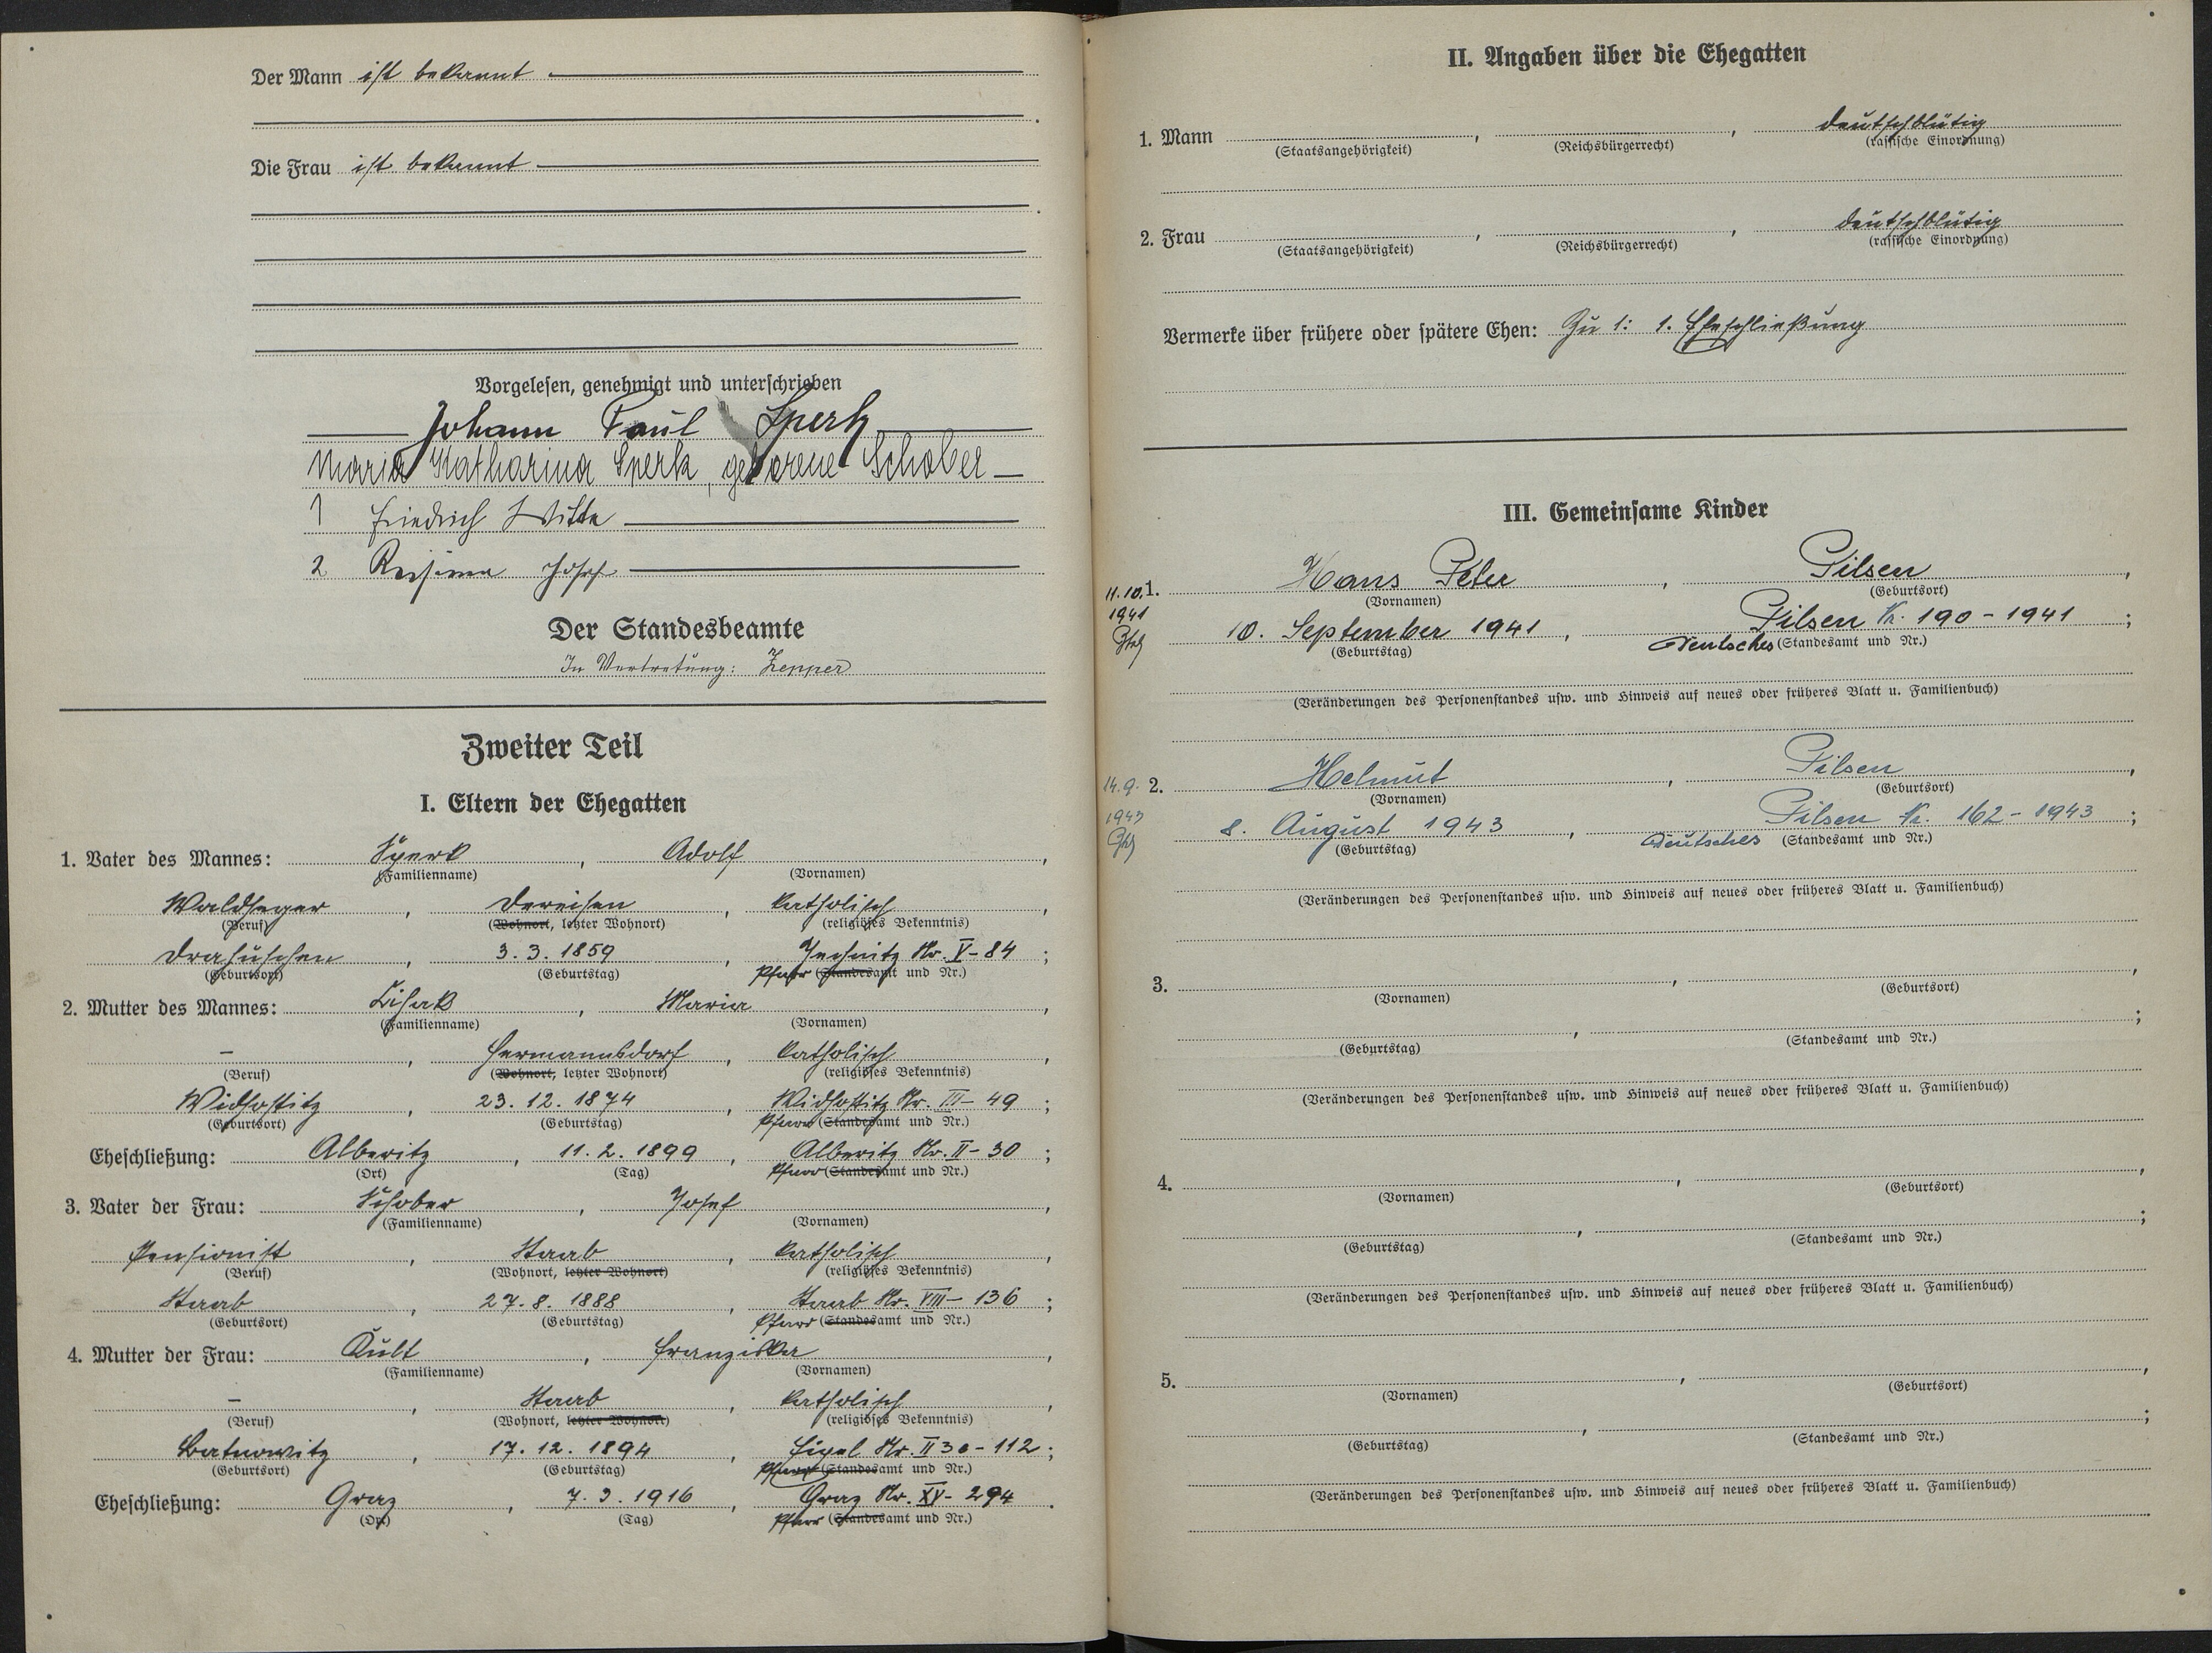 Der Mann ist bekannt
Die Frau ist bekannt
Vorgelesen, genehmigt und unterschrieben
Johann Paul Sperk
Maria Katharina Sperk, geborene Schober
1 Friedrich Witta
2 Josef
Der Standesbeamte
In Vertretung: Zepper
Zweiter Teil
I. Eltern der Ehegatten
1. Vater des Mannes: Sperk, Adolf,
(Familienname) (Vornamen)
Waldheger, Dereisen, katholisch,
(Beruf) (Wohnort, letzter Wohnort) (religiöses Bekenntnis)
Drahuschen, 3.3.1859, Jechnitz Nr. V-84;
(Geburtsort) (Geburtstag) Pfarr (Standesamt und Nr.)
2. Mutter des Mannes: Lischak, Maria,
(Familienname) (Vornamen)
–, Hermannsdorf, katholisch,
(Beruf) (Wohnort, letzter Wohnort) (religiöses Bekenntnis)
Widhostitz, 23.12.1874, Widhostitz Nr. III-49;
(Geburtsort) (Geburtstag) Pfarr (Standesamt und Nr.)
Eheschließung: Alberitz, 11.2.1899, Alberitz Nr. II-30;
(Ort) (Tag) Pfarr (Standesamt und Nr.)
3. Vater der Frau: Schober, Josef,
(Familienname) (Vornamen)
Pensionist, Staab, katholisch,
(Beruf) (Wohnort, letzter Wohnort) (religiöses Bekenntnis)
Staab, 27.8.1888, Staab Nr. VIII-136;
(Geburtsort) (Geburtstag) Pfarr (Standesamt und Nr.)
4. Mutter der Frau: Kult, Franziska,
(Familienname) (Vornamen)
–, Staab, katholisch,
(Beruf) (Wohnort, letzter Wohnort) (religiöses Bekenntnis)
17.12.1894, Nr. II 30-112;
(Geburtsort) (Geburtstag) Pfarr (Standesamt und Nr.)
Eheschließung: Graz, 7.3.1916, Graz Nr. XV-294.
(Ort) (Tag) Pfarr (Standesamt und Nr.)
II. Angaben über die Ehegatten
1. Mann , , deutschblütig
(Staatsangehörigkeit) (Reichsbürgerrecht) (rassische Einordnung)
2. Frau , , deutschblütig
(Staatsangehörigkeit) (Reichsbürgerrecht) (rassische Einordnung)
Vermerke über frühere oder spätere Ehen: Zu 1: 1. Eheschließung
III. Gemeinsame Kinder
11.10. 1. Hans Peter, Pilsen,
(Vornamen) (Geburtsort)
1941 10. September 1941, Pilsen Nr. 190-1941;
(Geburtstag) Deutsches (Standesamt und Nr.)
(Veränderungen des Personenstandes usw. und Hinweis auf neues oder früheres Blatt u. Familienbuch)
14.9. 2. Helmut, Pilsen,
(Vornamen) (Geburtsort)
1943 8. August 1943, Pilsen Nr. 162-1943;
(Geburtstag) Deutsches (Standesamt und Nr.)
(Veränderungen des Personenstandes usw. und Hinweis auf neues oder früheres Blatt u. Familienbuch)
3. , ,
(Vornamen) (Geburtsort)
, ;
(Geburtstag) (Standesamt und Nr.)
(Veränderungen des Personenstandes usw. und Hinweis auf neues oder früheres Blatt u. Familienbuch)
4. , ,
(Vornamen) (Geburtsort)
, ;
(Geburtstag) (Standesamt und Nr.)
(Veränderungen des Personenstandes usw. und Hinweis auf neues oder früheres Blatt u. Familienbuch)
5. , ,
(Vornamen) (Geburtsort)
, ;
(Geburtstag) (Standesamt und Nr.)
(Veränderungen des Personenstandes usw. und Hinweis auf neues oder früheres Blatt u. Familienbuch)